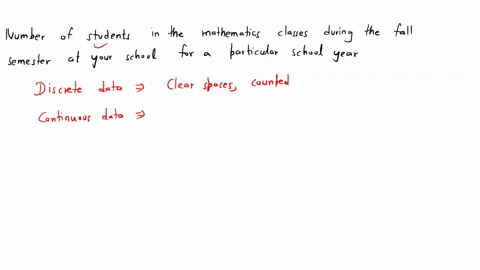 Number of students in the mathematics classes during the fall
semester at your school for a particular school year
Discrete data ⇒ Clear spaces, counted
Continuous data ⇒